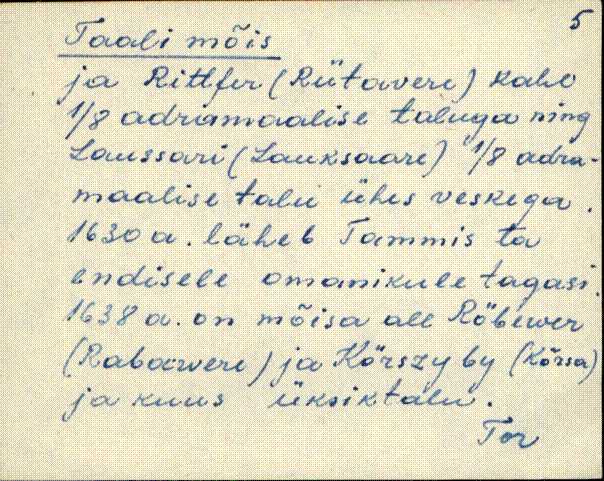 5
Taali mõis
ja Rittfer (Rütavere) kahe
1/8 adramaalise taluga ning
Laussari (Lauksaare) 1/8 adra-
maalise talu ühes veskega.
1630 a. läheb Tammis ta
endisele omanikule tagasi.
1638 a. on mõisa all Röbewer
(Rabavere) ja Körszyby (Kõrsa)
ja kuus üksiktalu.
Tor